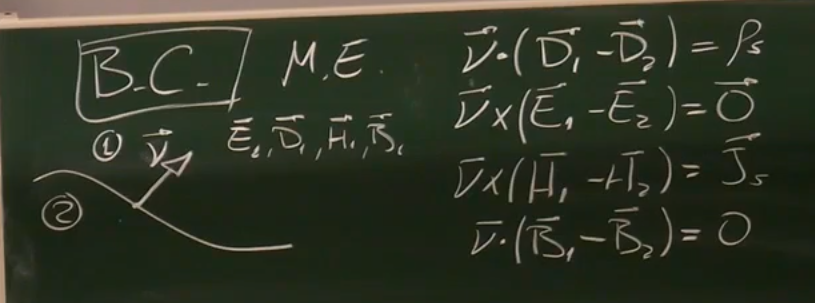 B.C. M.E.
① ν⃗ E⃗₁, D⃗₁, H⃗₁, B⃗₁
②
ν⃗·(D⃗₁ - D⃗₂) = ρₛ
ν⃗×(E⃗₁ - E⃗₂) = 0⃗
ν⃗×(H⃗₁ - H⃗₂) = J⃗ₛ
ν⃗·(B⃗₁ - B⃗₂) = 0